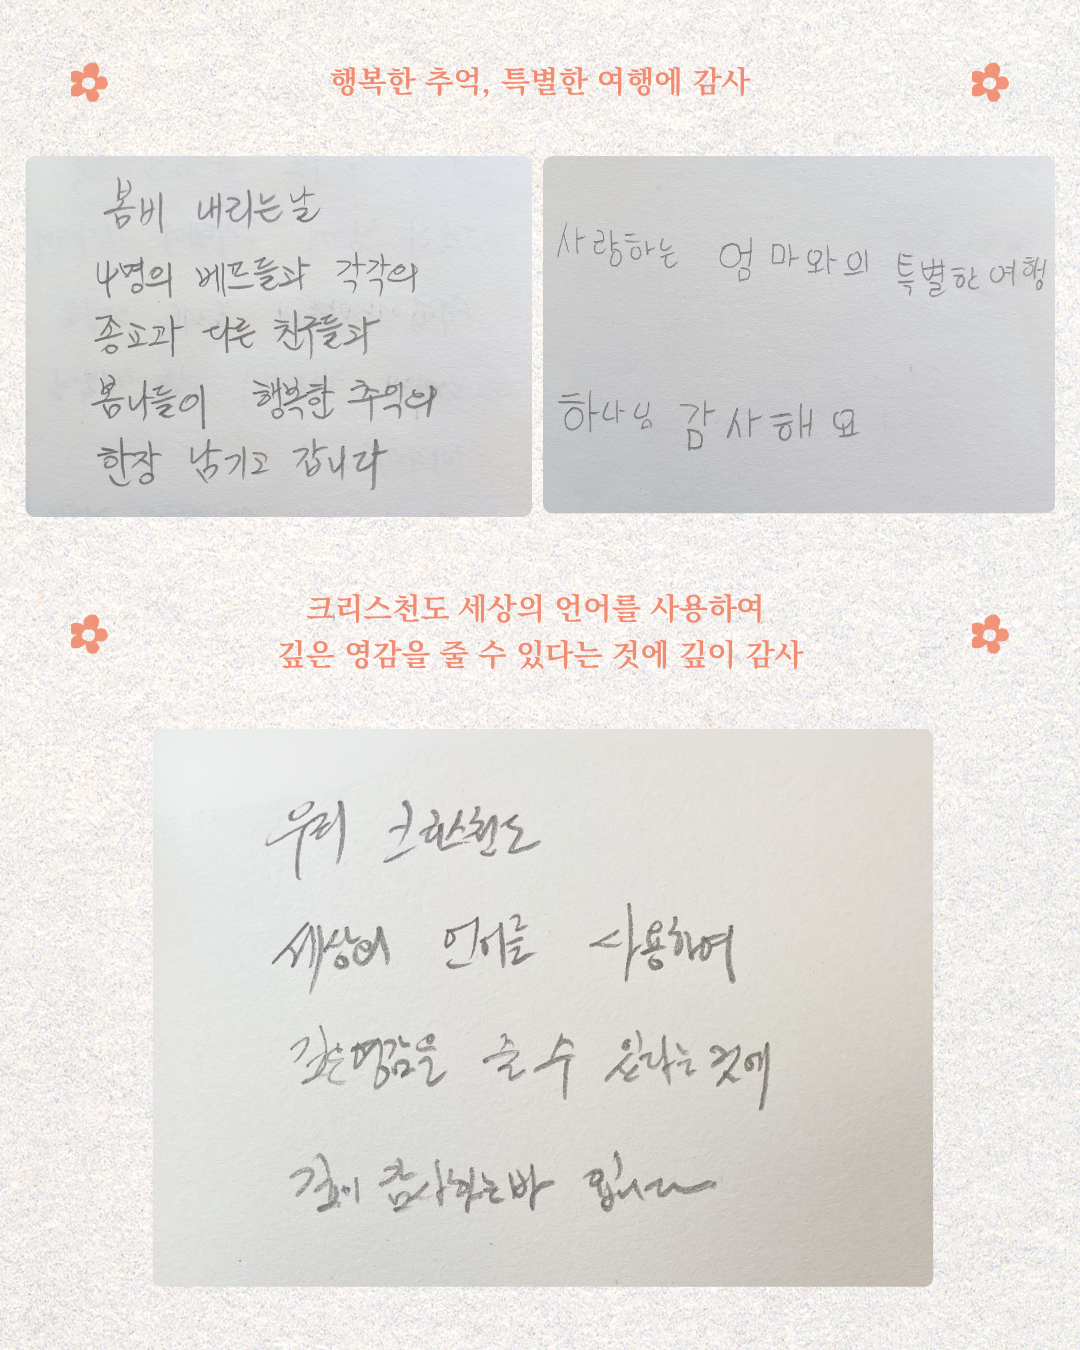 행복한 추억, 특별한 여행에 감사
봄비 내리는날
4명의 베프들과 각각의
종교과 다른 친구들과
봄나들이 행복한 추억의
한장 남기고 갑니다
사랑하는 엄마와의 특별한 여행
하나님 감사해요
크리스천도 세상의 언어를 사용하여
깊은 영감을 줄 수 있다는 것에 깊이 감사
우리 크리스천도
세상의 언어를 사용하여
깊은 영감을 줄 수 있다는 것에
깊이 감사하는바 입니다